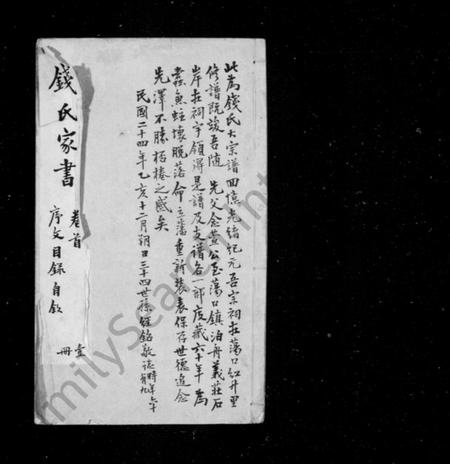 此為錢氏大宗譜回憶光緒紀元吾宗祠在蕩口紅升里
修譜既竣吾隨 先父念萱公至蕩口鎮泊舟義莊石
岸在祠宇領得是譜及支譜各一部庋藏六十年為
蠹魚蛀壞脫落命立藩重新裝表保存世德追念
先澤不勝桮棬之感矣
民國二十四年乙亥十二月朔日三十四世孫經銘敬誌時年六十
有九
錢氏家書 卷首
序文目錄自敘
壹
冊
milySearch.int